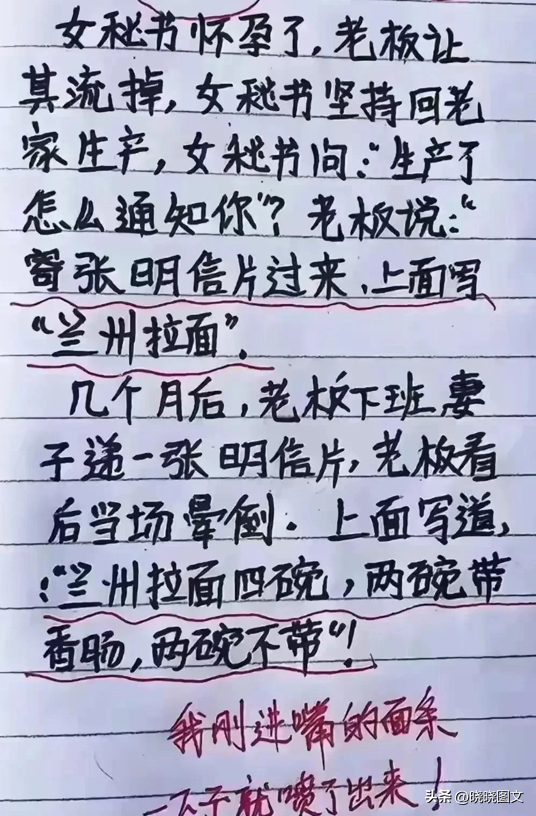 女秘书怀孕了，老板让
其流掉，女秘书坚持回老
家生产，女秘书问：“生产了
怎么通知你”？老板说：“
寄张明信片过来，上面写
“兰州拉面”．
几个月后，老板下班妻
子递一张明信片，老板看
后当场晕倒．上面写道，
：“兰州拉面四碗，两碗带
香肠，两碗不带”！
我刚进嘴的面条
一下子就喷了出来！
头条 @晓晓图文